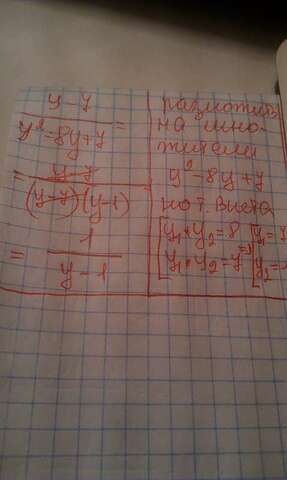 y-7
y²-8y+7 =
= y-7
(y-7)(y-1)
= 1
y-1
разложить
на мно-
жители
y²-8y+7
по т. Виета
y₁+y₂=8 y₁=7
y₁•y₂=7 => y₂=1